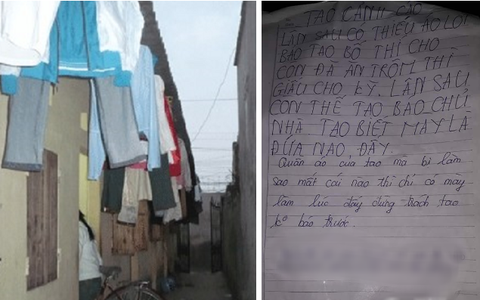 TAO CẢNH CÁO
LẦN SAU CÓ THIẾU ÁO LÓT
BẢO TAO BỐ THÍ CHO
CÒN ĐÃ ĂN TRỘM THÌ
GIẤU CHO KỸ. LẦN SAU
CÒN THẾ TAO BẢO CHỦ
NHÀ TAO BIẾT MÀY LÀ
ĐỨA NÀO ĐẤY.
Quần áo của tao mà bị làm
sao mất cái nào thì chỉ có mày
làm lúc đấy đừng trách tao
ko báo trước.